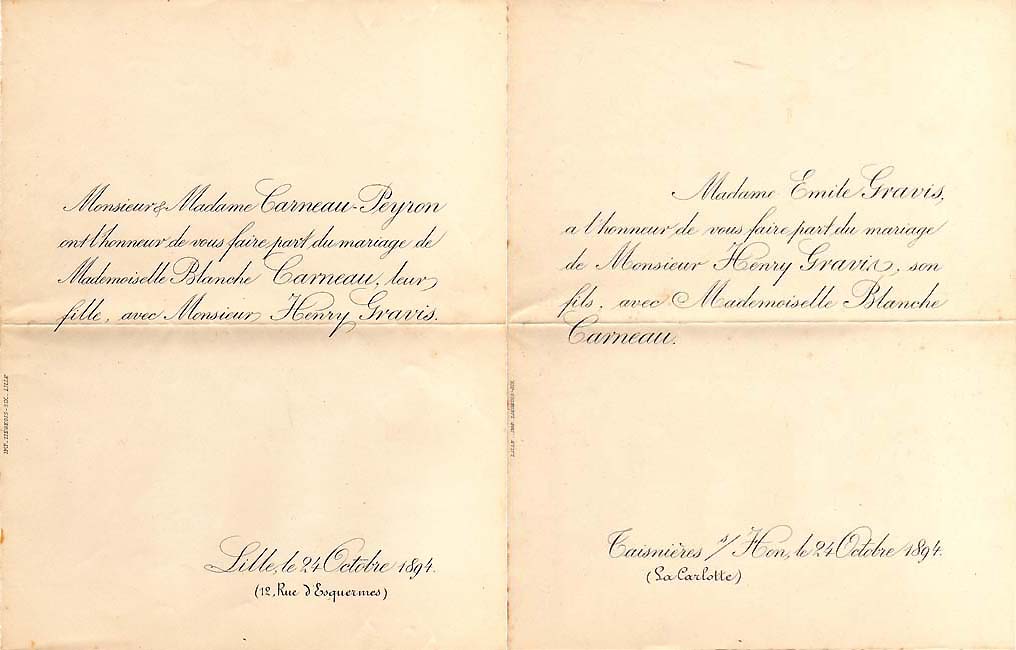 Monsieur & Madame Carneau-Peyron
ont l'honneur de vous faire part du mariage de
Mademoiselle Blanche Carneau, leur
fille, avec Monsieur Henry Gravis.
Lille, le 24 Octobre 1894.
(12, Rue d'Esquermes)
Madame Emile Gravis,
a l'honneur de vous faire part du mariage
de Monsieur Henry Gravis, son
fils, avec Mademoiselle Blanche
Carneau.
Taisnières s/ Hon, le 24 Octobre 1894.
(La Carlotte)